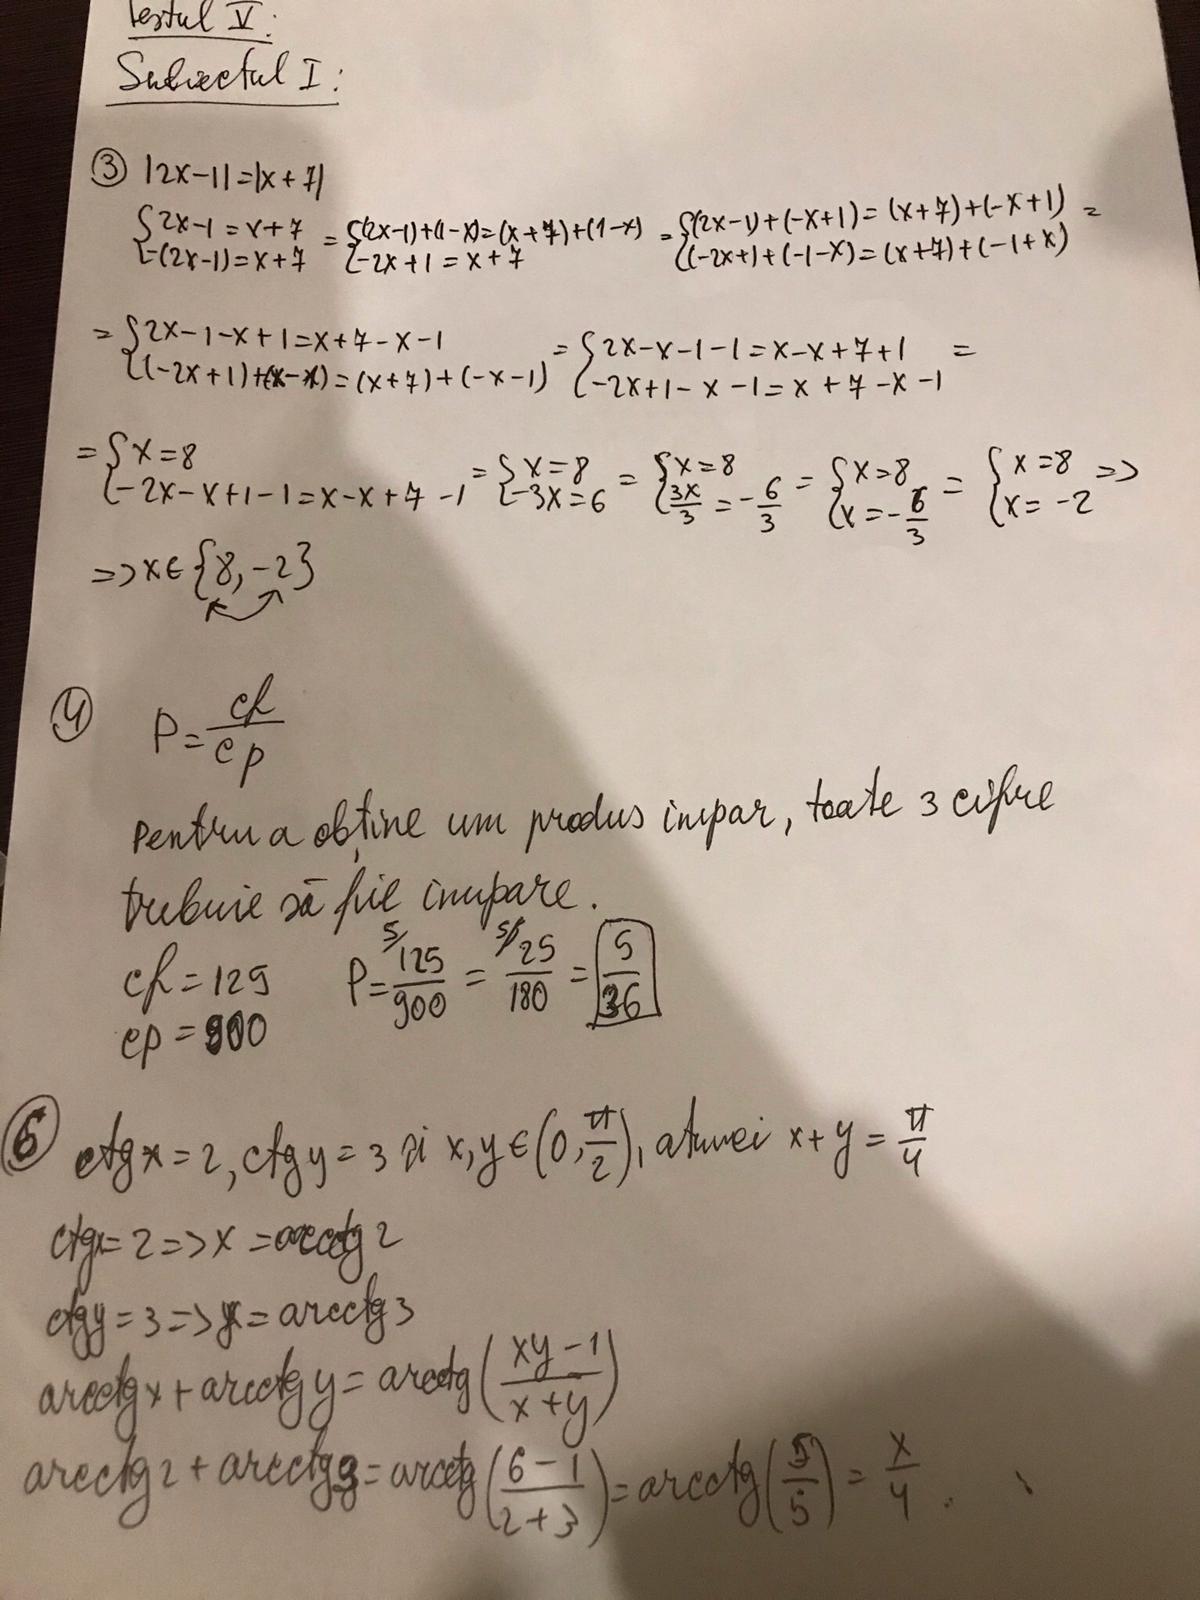 Testul V:
Subiectul I:
③ |2x-1|=|x+7|
{2x-1=x+7 = {(2x-1)+(1-x)=(x+7)+(1-x) = {(2x-1)+(-x+1)=(x+7)+(-x+1) =
{-(2x-1)=x+7 {-2x+1=x+7 {(-2x+1)+(-1-x)=(x+7)+(-1+x)
= {2x-1-x+1=x+7-x-1 = {2x-x-1-1=x-x+7+1 =
{(-2x+1)+(x-x)=(x+7)+(-x-1) {-2x+1-x-1=x+7-x-1
= {x=8 = {x=8 = {x=8 = {x=8 = {x=8 =>
{-2x-x+1-1=x-x+7-1 {-3x=6 {3x/3=-6/3 {x=-6/3 {x=-2
=> x∈{8,-2}
④ P=cf/cp
Pentru a obține um produs impar, toate 3 cifre
trebuie să fie impare.
cf=125 P= 5/ 125/900 = 5/ 25/180 = 5/36
cp=900
⑥ ctgx=2, ctgy=3 și x,y∈(0,π/2), atunci x+y=π/4
ctgx=2=>x=arcctg2
ctgy=3=>y=arcctg3
arcctgx+arcctgy=arcctg(xy-1/x+y)
arcctg2+arcctg3=arcctg(6-1/2+3)=arcctg(5/5)=x/4.